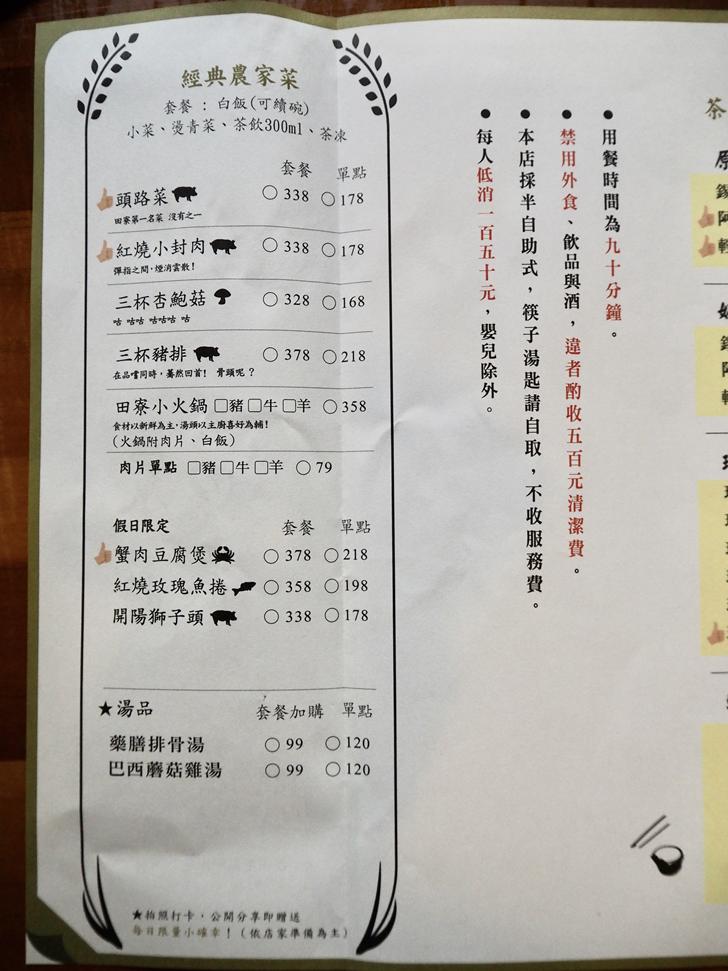 經典農家菜
套餐：白飯(可續碗)
小菜、燙青菜、茶飲300ml、茶凍
套餐 單點
頭路菜 338 178
田寮第一名菜 沒有之一
紅燒小封肉 338 178
彈指之間，煙消雲散！
三杯杏鮑菇 328 168
咕 咕咕 咕咕咕 咕
三杯豬排 378 218
在品嚐同時，驀然回首！ 骨頭呢？
田寮小火鍋 □豬□牛□羊 358
食材以新鮮為主，湯頭以主廚喜好為輔！
(火鍋附肉片、白飯)
肉片單點 □豬□牛□羊 79
假日限定 套餐 單點
蟹肉豆腐煲 378 218
紅燒玫瑰魚捲 358 198
開陽獅子頭 338 178
★湯品 套餐加購 單點
藥膳排骨湯 99 120
巴西蘑菇雞湯 99 120
★拍照打卡，公開分享即贈送
每日限量小確幸！(依店家準備為主)
●用餐時間為九十分鐘。
●禁用外食、飲品與酒，違者酌收五百元清潔費。
●本店採半自助式，筷子湯匙請自取，不收服務費。
●每人低消一百五十元，嬰兒除外。
茶